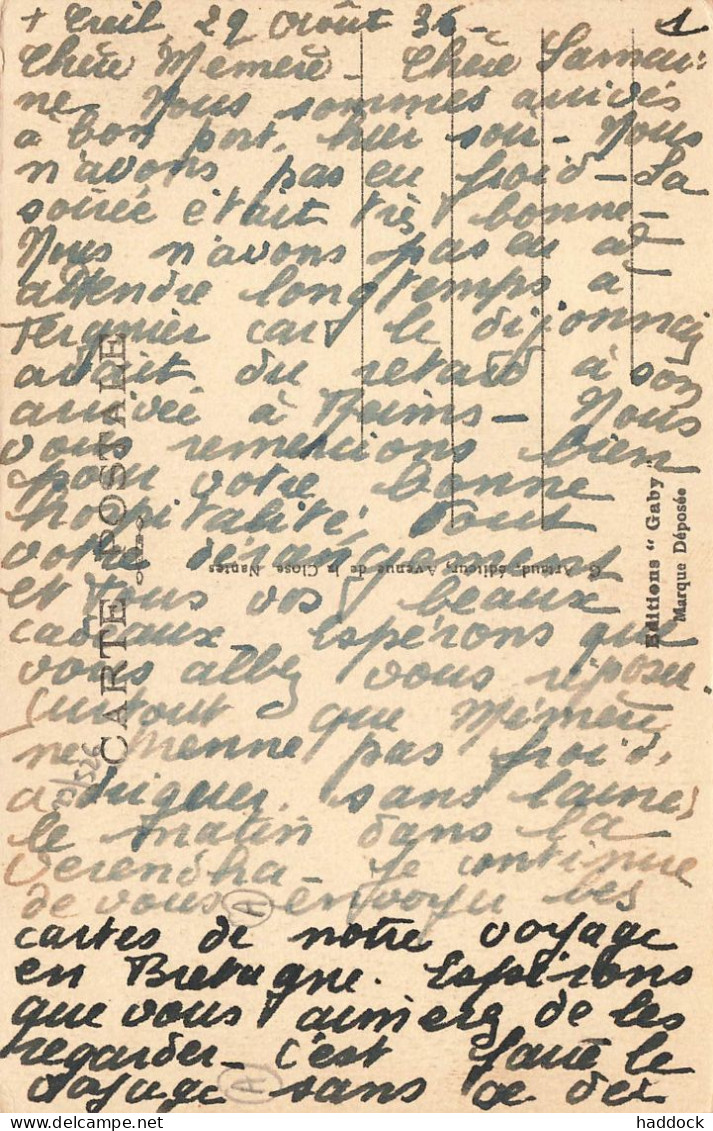 + Creil, 29 Août 36 - 1
Chère Mémère - Chère Larrai-
ne Nous sommes arrivés
à bon port, hier soir - Nous
n'avons pas eu froid - La
soirée était très bonne -
Nous n'avons pas eu à
attendre longtemps à
Tergnier car le dijonnais
avait du retard à son
arrivée à Reims - Nous
vous remercions bien
pour votre bonne
hospitalité, tout
votre dérangement
et tous vos beaux
cadeaux. Espérons que
vous allez vous reposer
surtout que Mémère
ne prenne pas froid,
sans laine,
le matin dans la
verendha - Je continue
de vous envoyer les
cartes de notre voyage
en Bretagne. Espérons
que vous aimerez de les
regarder - C'est faire le
voyage sans se dér
CARTE POSTALE
G. Artaud, éditeur, Avenue de la Close, Nantes
Editions "Gaby"
Marque Déposée
A
A
haddock